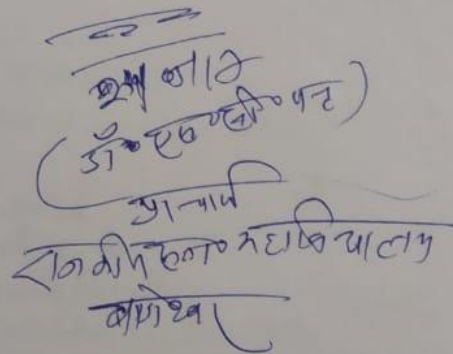 (डॉ० एच० सी० पन्त)
प्राचार्य
राजकीय स्ना० महाविद्यालय
बागेश्वर